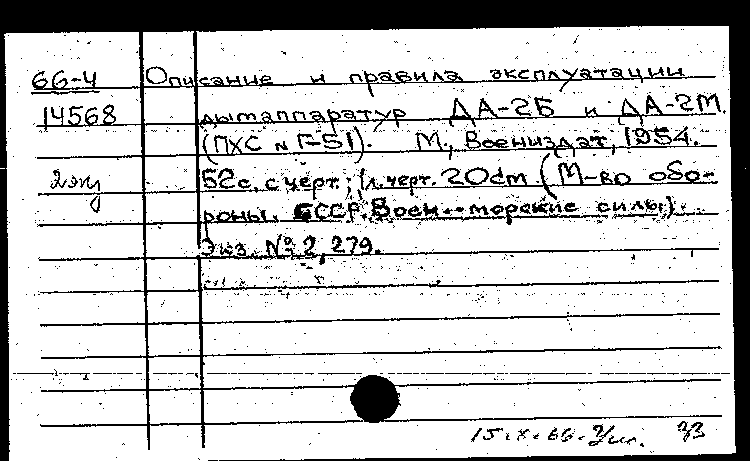 66-4 Описание и правила эксплуатации
14568 дымаппаратур ДА-2Б и ДА-2М.
(ПХС № Г-51). М., Воениздат, 1954.
2 экз 52с. с черт.; 1 л. черт. 20см (М-во обо-
роны. СССР. Воен.-морские силы).
Экз. № 2, 279.
15.X.66.